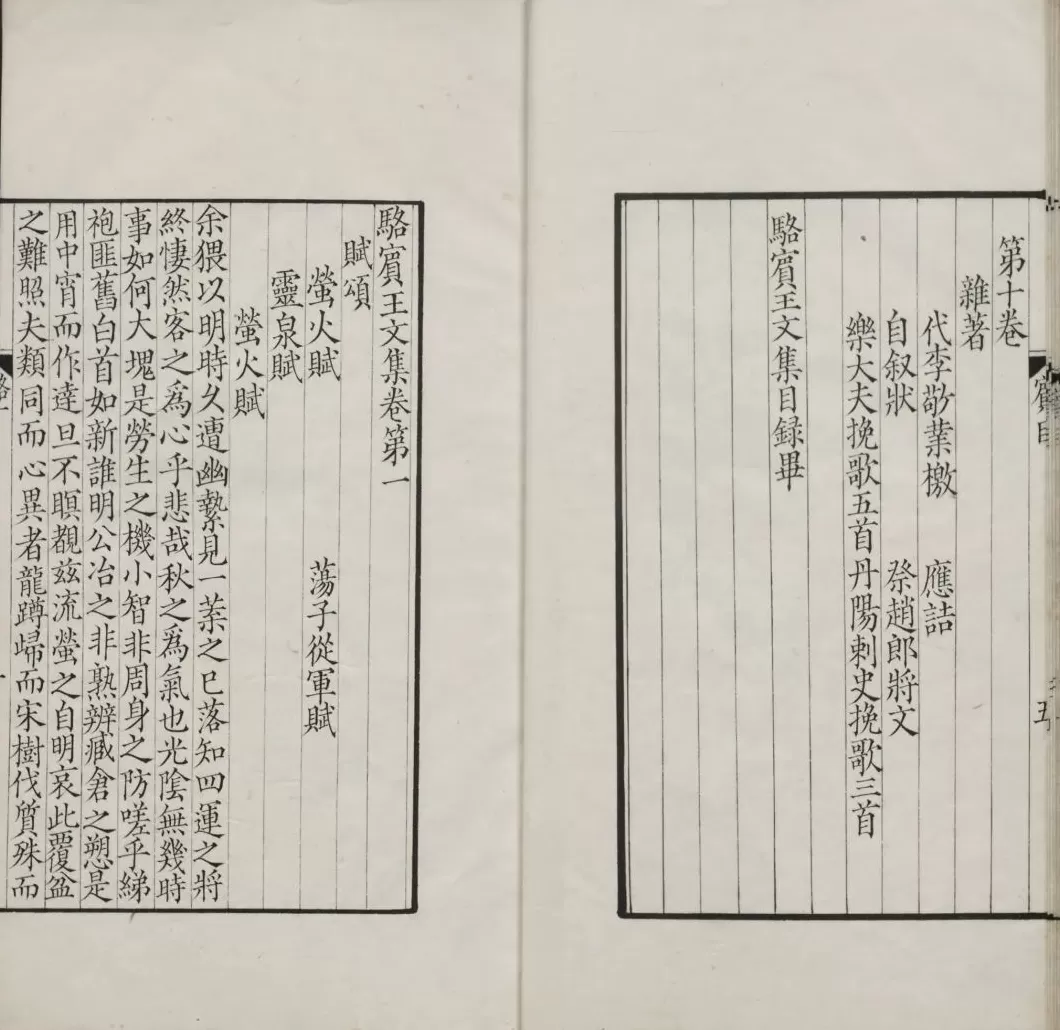 第十卷
雜著
代李敬業檄 應詰
自叙狀 祭趙郎將文
樂大夫挽歌五首 丹陽刺史挽歌三首
駱賓王文集目録畢
駱賓王文集卷第一
賦頌
螢火賦 蕩子從軍賦
靈泉賦
螢火賦
余猥以明時久遭幽縶見一葉之已落知四運之將
終悽然客之爲心乎悲哉秋之爲氣也光陰無幾時
事如何大塊是勞生之機小智非周身之防嗟乎綈
袍匪舊白首如新誰明公冶之非熟辨臧倉之愬是
用中宵而作達旦不瞑覩兹流螢之自明哀此覆盆
之難照夫類同而心異者龍蹲歸而宋樹伐質殊而